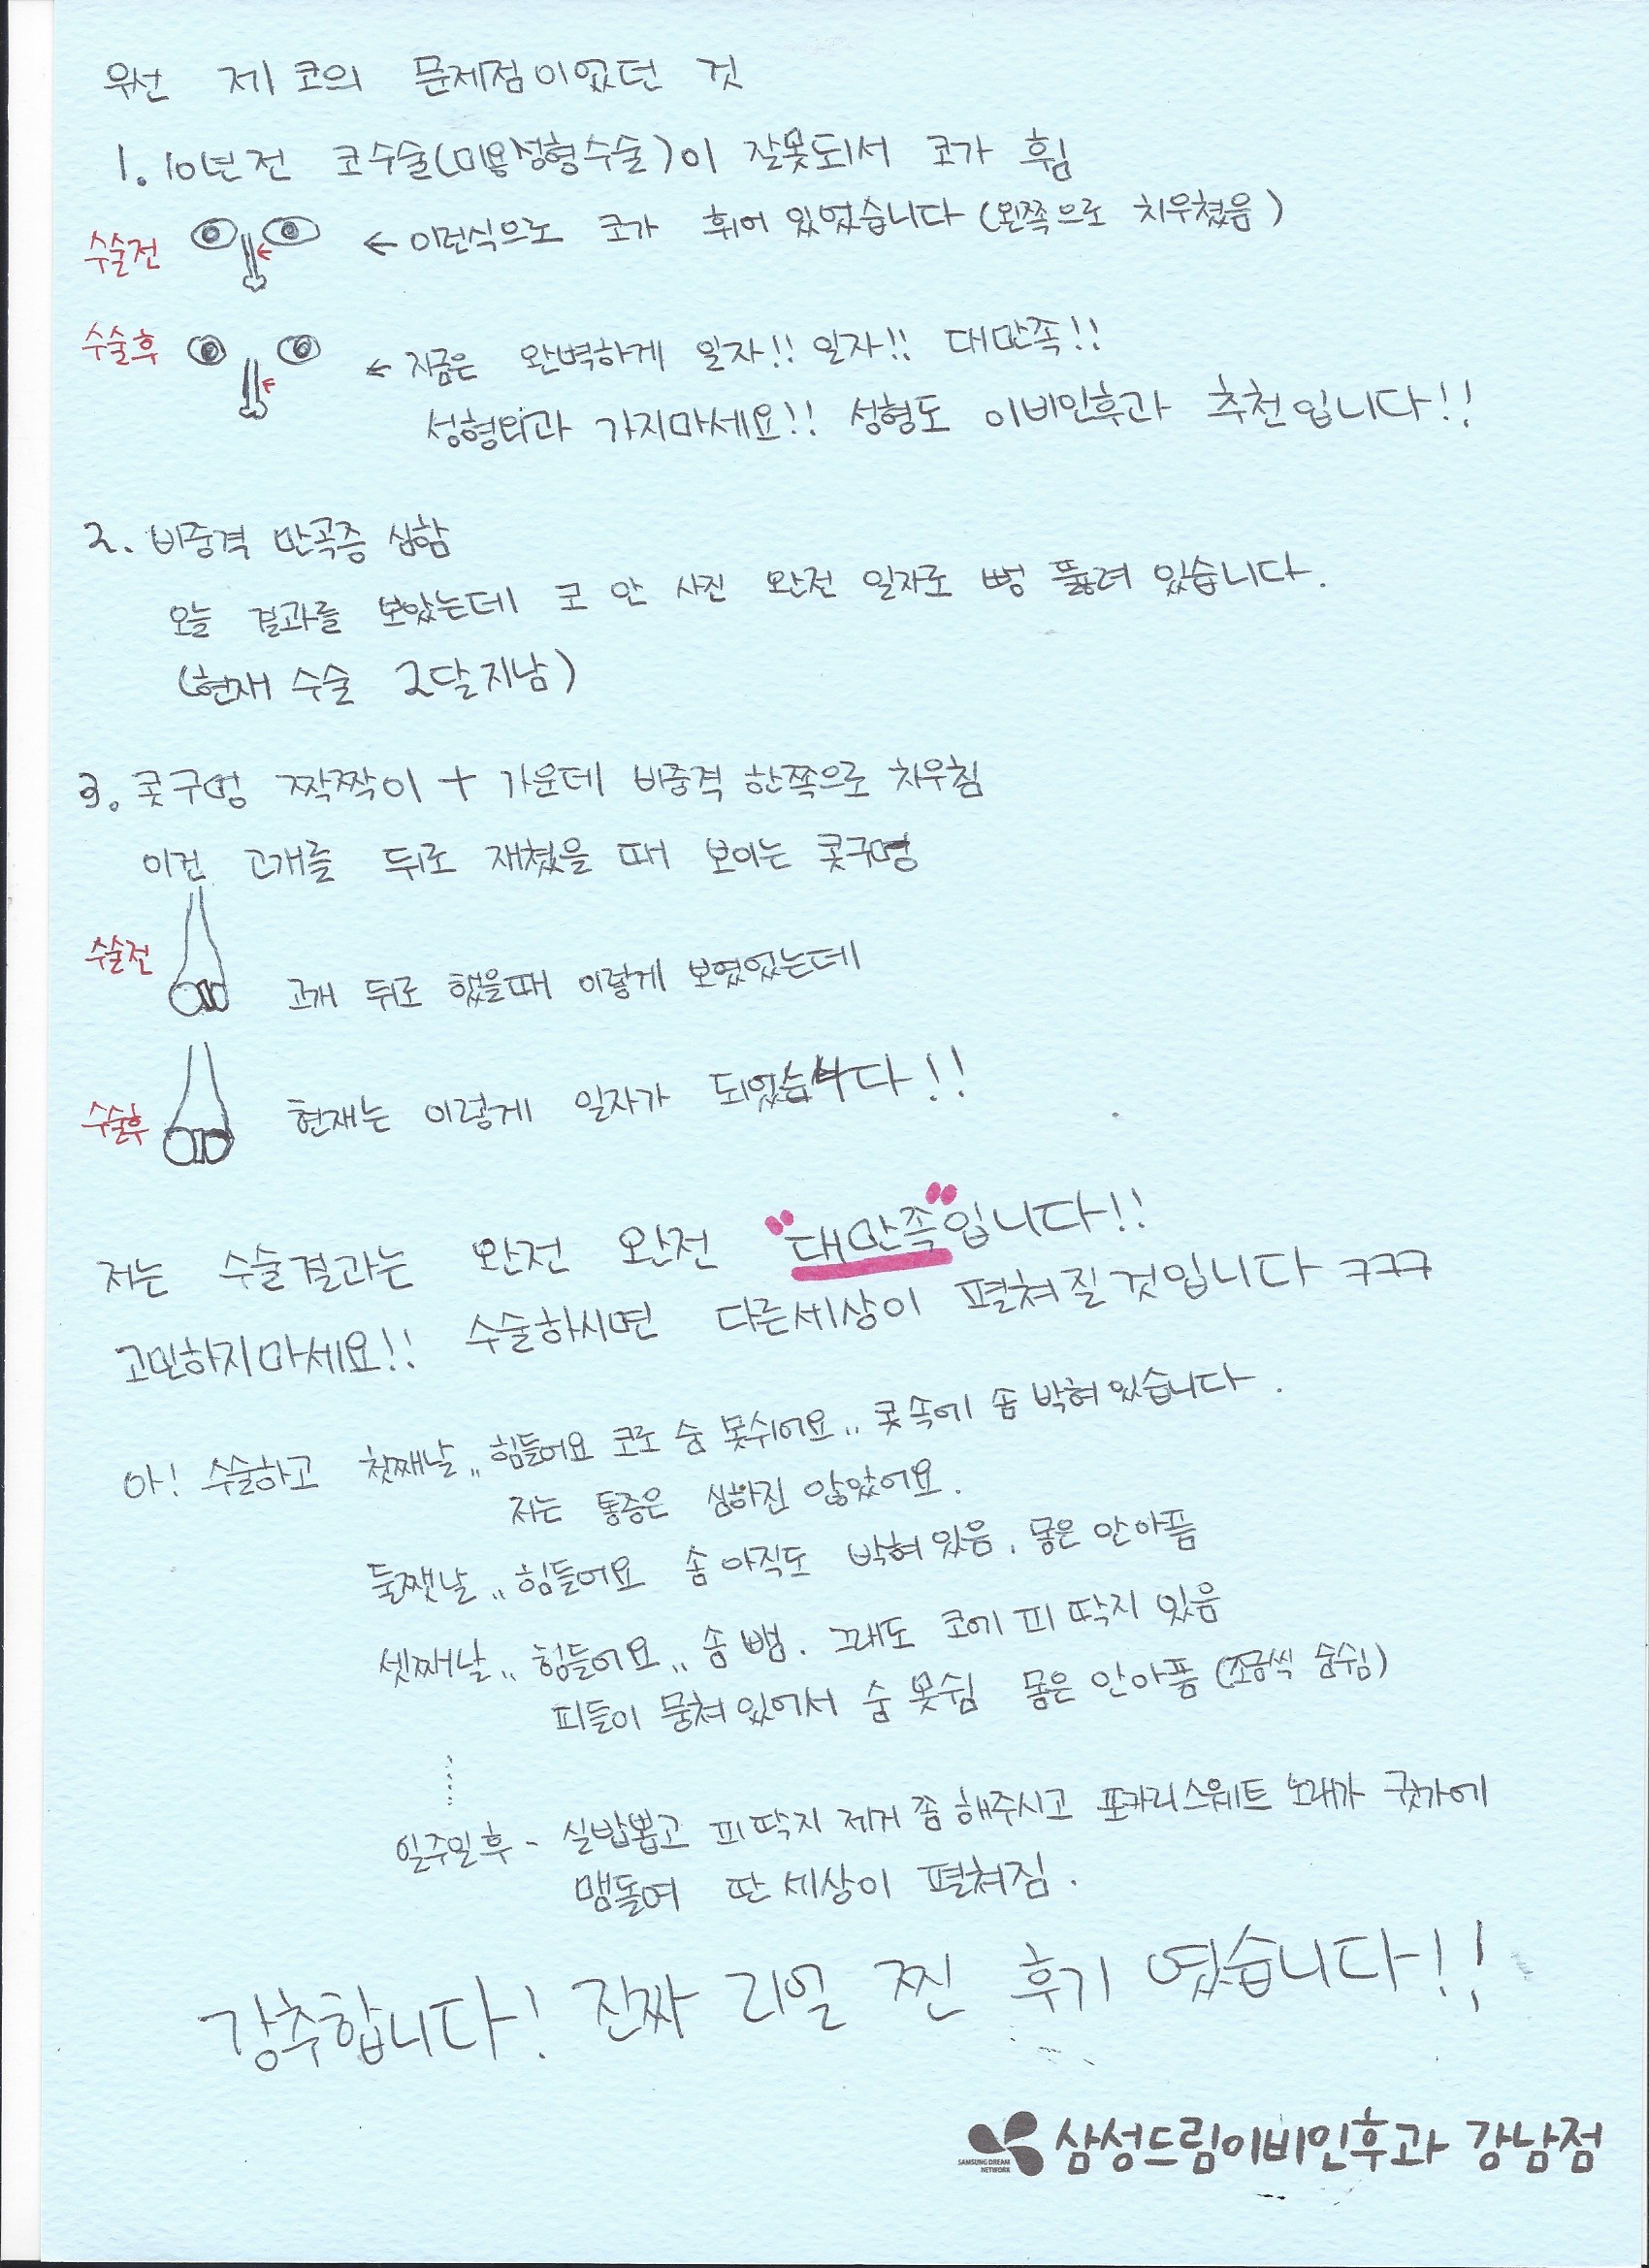 우선 제 코의 문제점이었던 것
1. 10년전 코수술(미용성형수술)이 잘못되서 코가 휨
수술전 ← 이런식으로 코가 휘어 있었습니다 (왼쪽으로 치우쳤음)
수술후 ← 지금은 완벽하게 일자!! 일자!! 대만족!!
성형외과 가지마세요!! 성형도 이비인후과 추천입니다!!
2. 비중격 만곡증 심함
오늘 결과를 보았는데 코 안 사진 완전 일자로 뻥 뚫려 있습니다.
(현재 수술 2달지남)
3. 콧구멍 짝짝이 + 가운데 비중격 한쪽으로 치우침
이건 고개를 뒤로 재쳤을 때 보이는 콧구멍
수술전 고개 뒤로 했을때 이렇게 보였었는데
수술후 현재는 이렇게 일자가 되었습니다!!
저는 수술결과는 완전 완전 "대만족"입니다!!
고민하지마세요!! 수술하시면 다른세상이 펼쳐질것입니다 ㅋㅋㅋ
아! 수술하고 첫째날.. 힘들어요 코로 숨 못쉬어요.. 콧속에 솜 박혀있습니다.
저는 통증은 심하진 않았어요.
둘쨋날.. 힘들어요 솜 아직도 박혀있음. 몸은 안아픔
셋째날.. 힘들어요.. 솜 뺌. 그래도 코에 피 딱지 있음
피들이 뭉쳐있어서 숨 못쉼 몸은 안아픔 (조금씩 숨쉼)
......
일주일후 - 실밥뽑고 피딱지 제거 좀 해주시고 포카리스웨트 노래가 귓가에
맴돌며 딴 세상이 펼쳐짐.
강추합니다! 진짜 리얼 찐 후기 였습니다!!
SAMSUNG DREAM NETWORK 삼성드림이비인후과 강남점